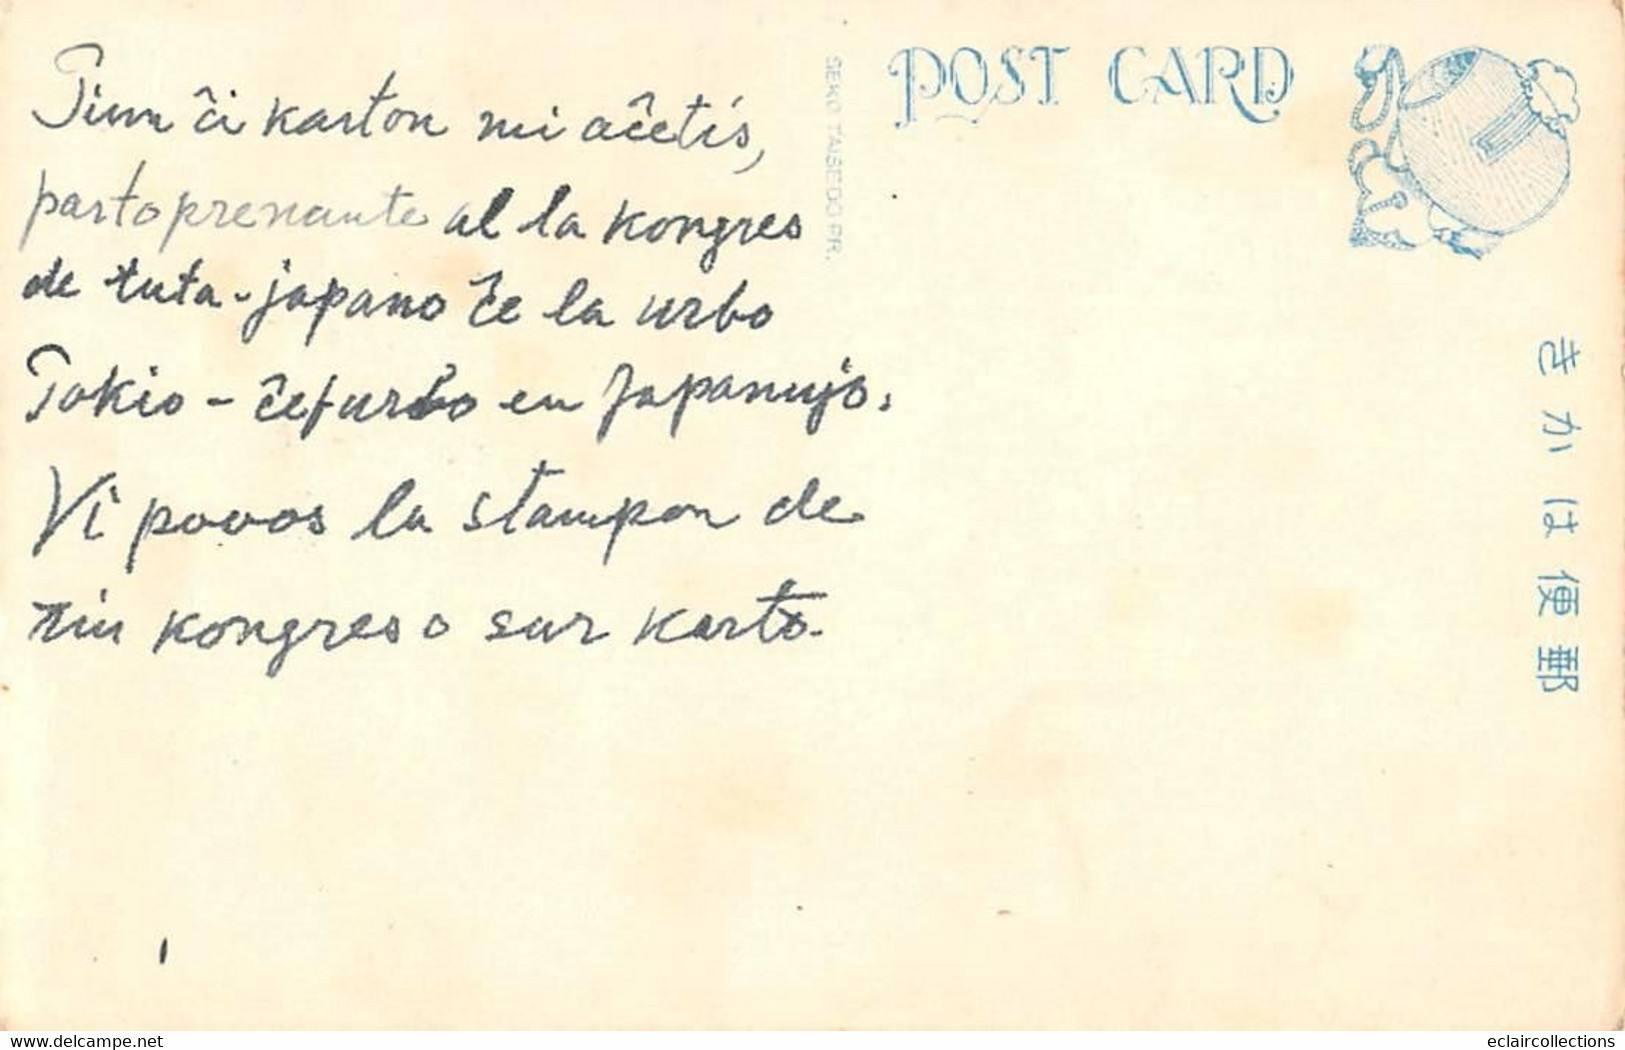 Tiun ĉi karton mi aĉetis,
partoprenante al la kongres
de tuta-japano ĉe la urbo
Tokio - ĉefurbo en Japanujo.
Vi povos la stampon de
tiu kongreso sur karto.
SEKO TAISEDO PR.
POST CARD
きかは便郵
eclaircollections